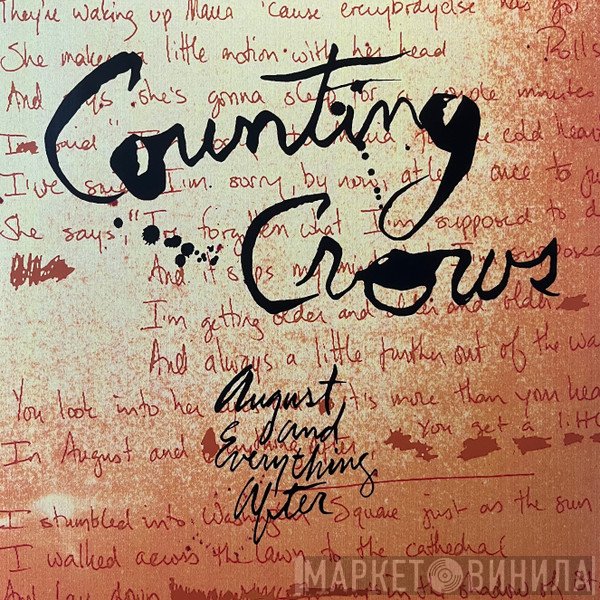 They're waking up Maria 'cause everybody else has got
She makes a little motion with her head
Rolls
And says she's gonna sleep for a couple minutes
Counting
I'm said
cold
I've said, I'm sorry, by now, at least once to ju
Crows
She says, "I've forgotten what I'm supposed to d
And it slips my mind
I'm getting older and older and older
And always a little further out of the wa
August
and
Everything
After
You look into her it's more than your hea
In August and
You get a littl
I stumbled into Washington Square just as the sun
I walked across the lawn to the cathedral
And lay down in the shadow
МАРКЕТ ВИНИЛА